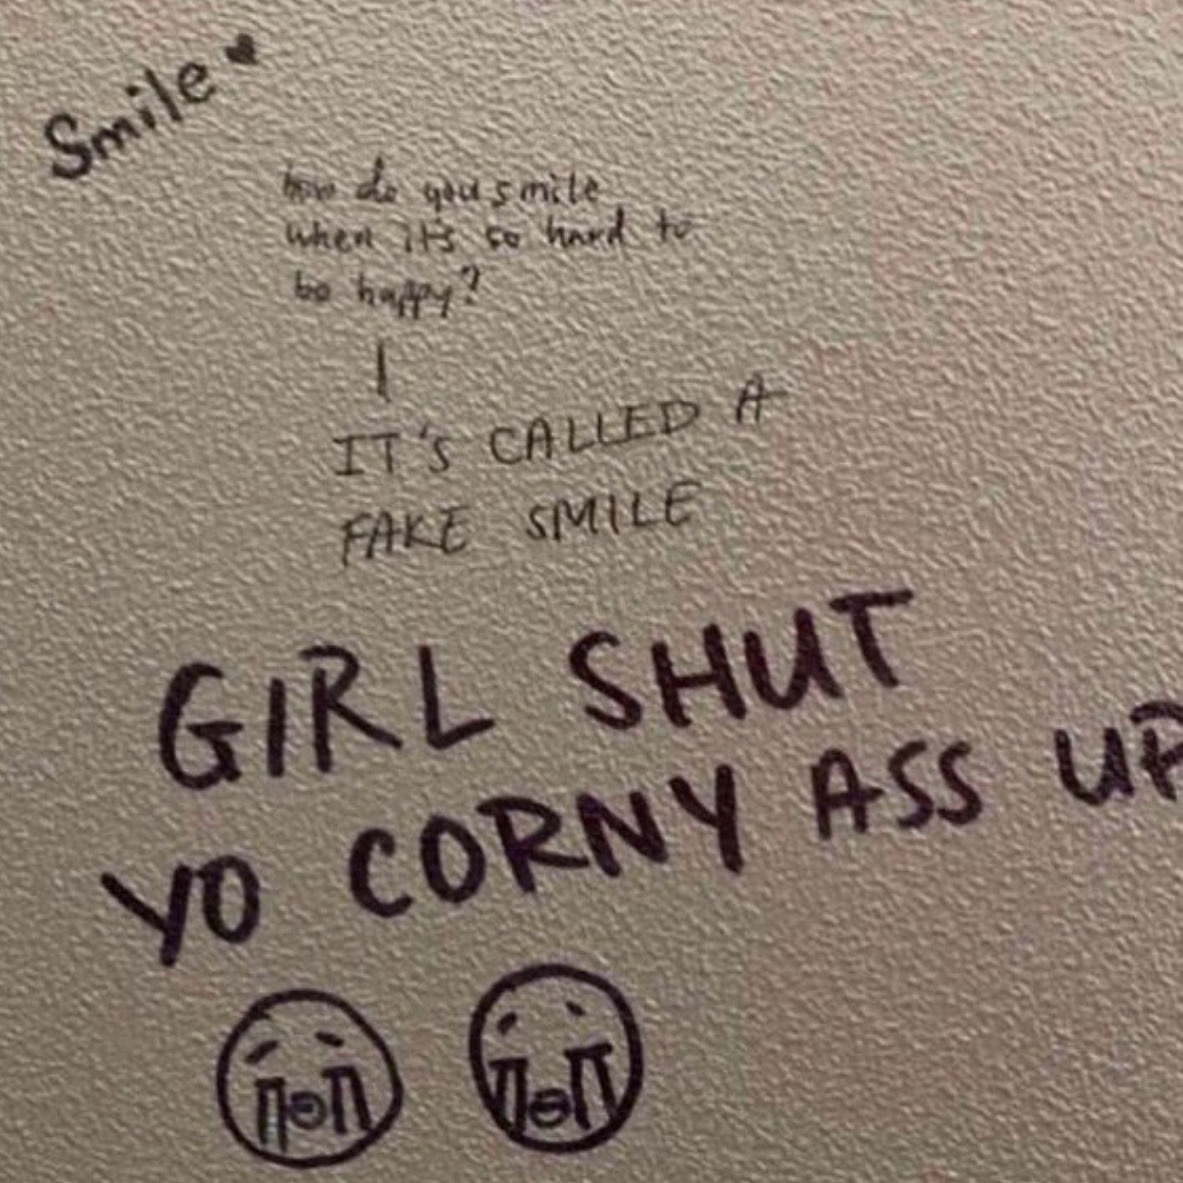 Smile ♥
how do you smile
when it's so hard to
be happy?
IT'S CALLED A
FAKE SMILE
GIRL SHUT
YO CORNY ASS UP